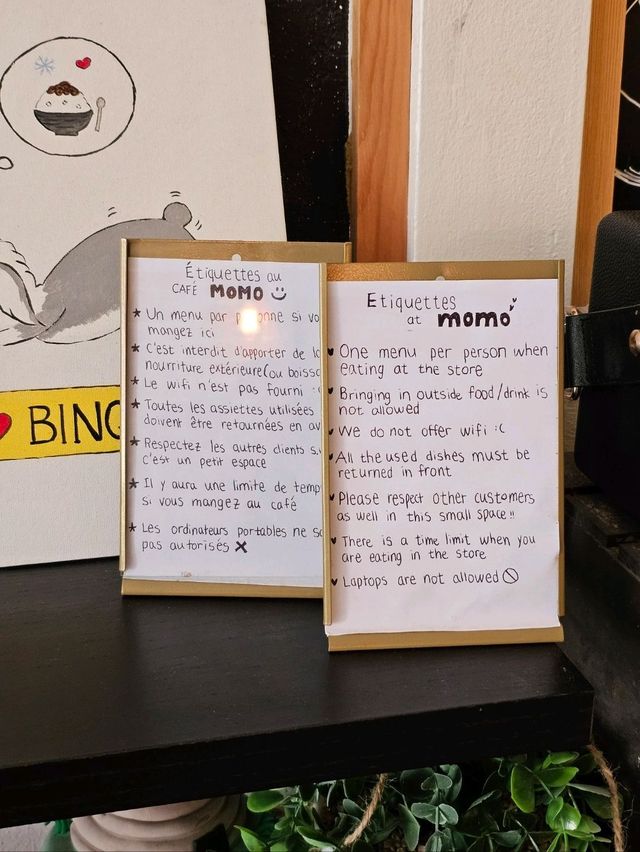 BING
Étiquettes au
CAFÉ MOMO
* Un menu par si
mangez ici
* C'est interdit d'apporter de
nourriture extérieure (ou
* Le wifi n'est pas fourni :
* Toutes les assiettes utilisées
doivent être retournées en
* Respectez les autres clients
c'est un petit espace
* Il y aura une limite de
si vous mangez au café
* Les ordinateurs portables ne
pas autorisés X
Etiquettes
at momo
One menu per person when
eating at the store
Bringing in outside food/drink is
not allowed
We do not offer wifi :(
All the used dishes must be
returned in front
Please respect other customers
as well in this small space!!
There is a time limit when you
are eating in the store
Laptops are not allowed